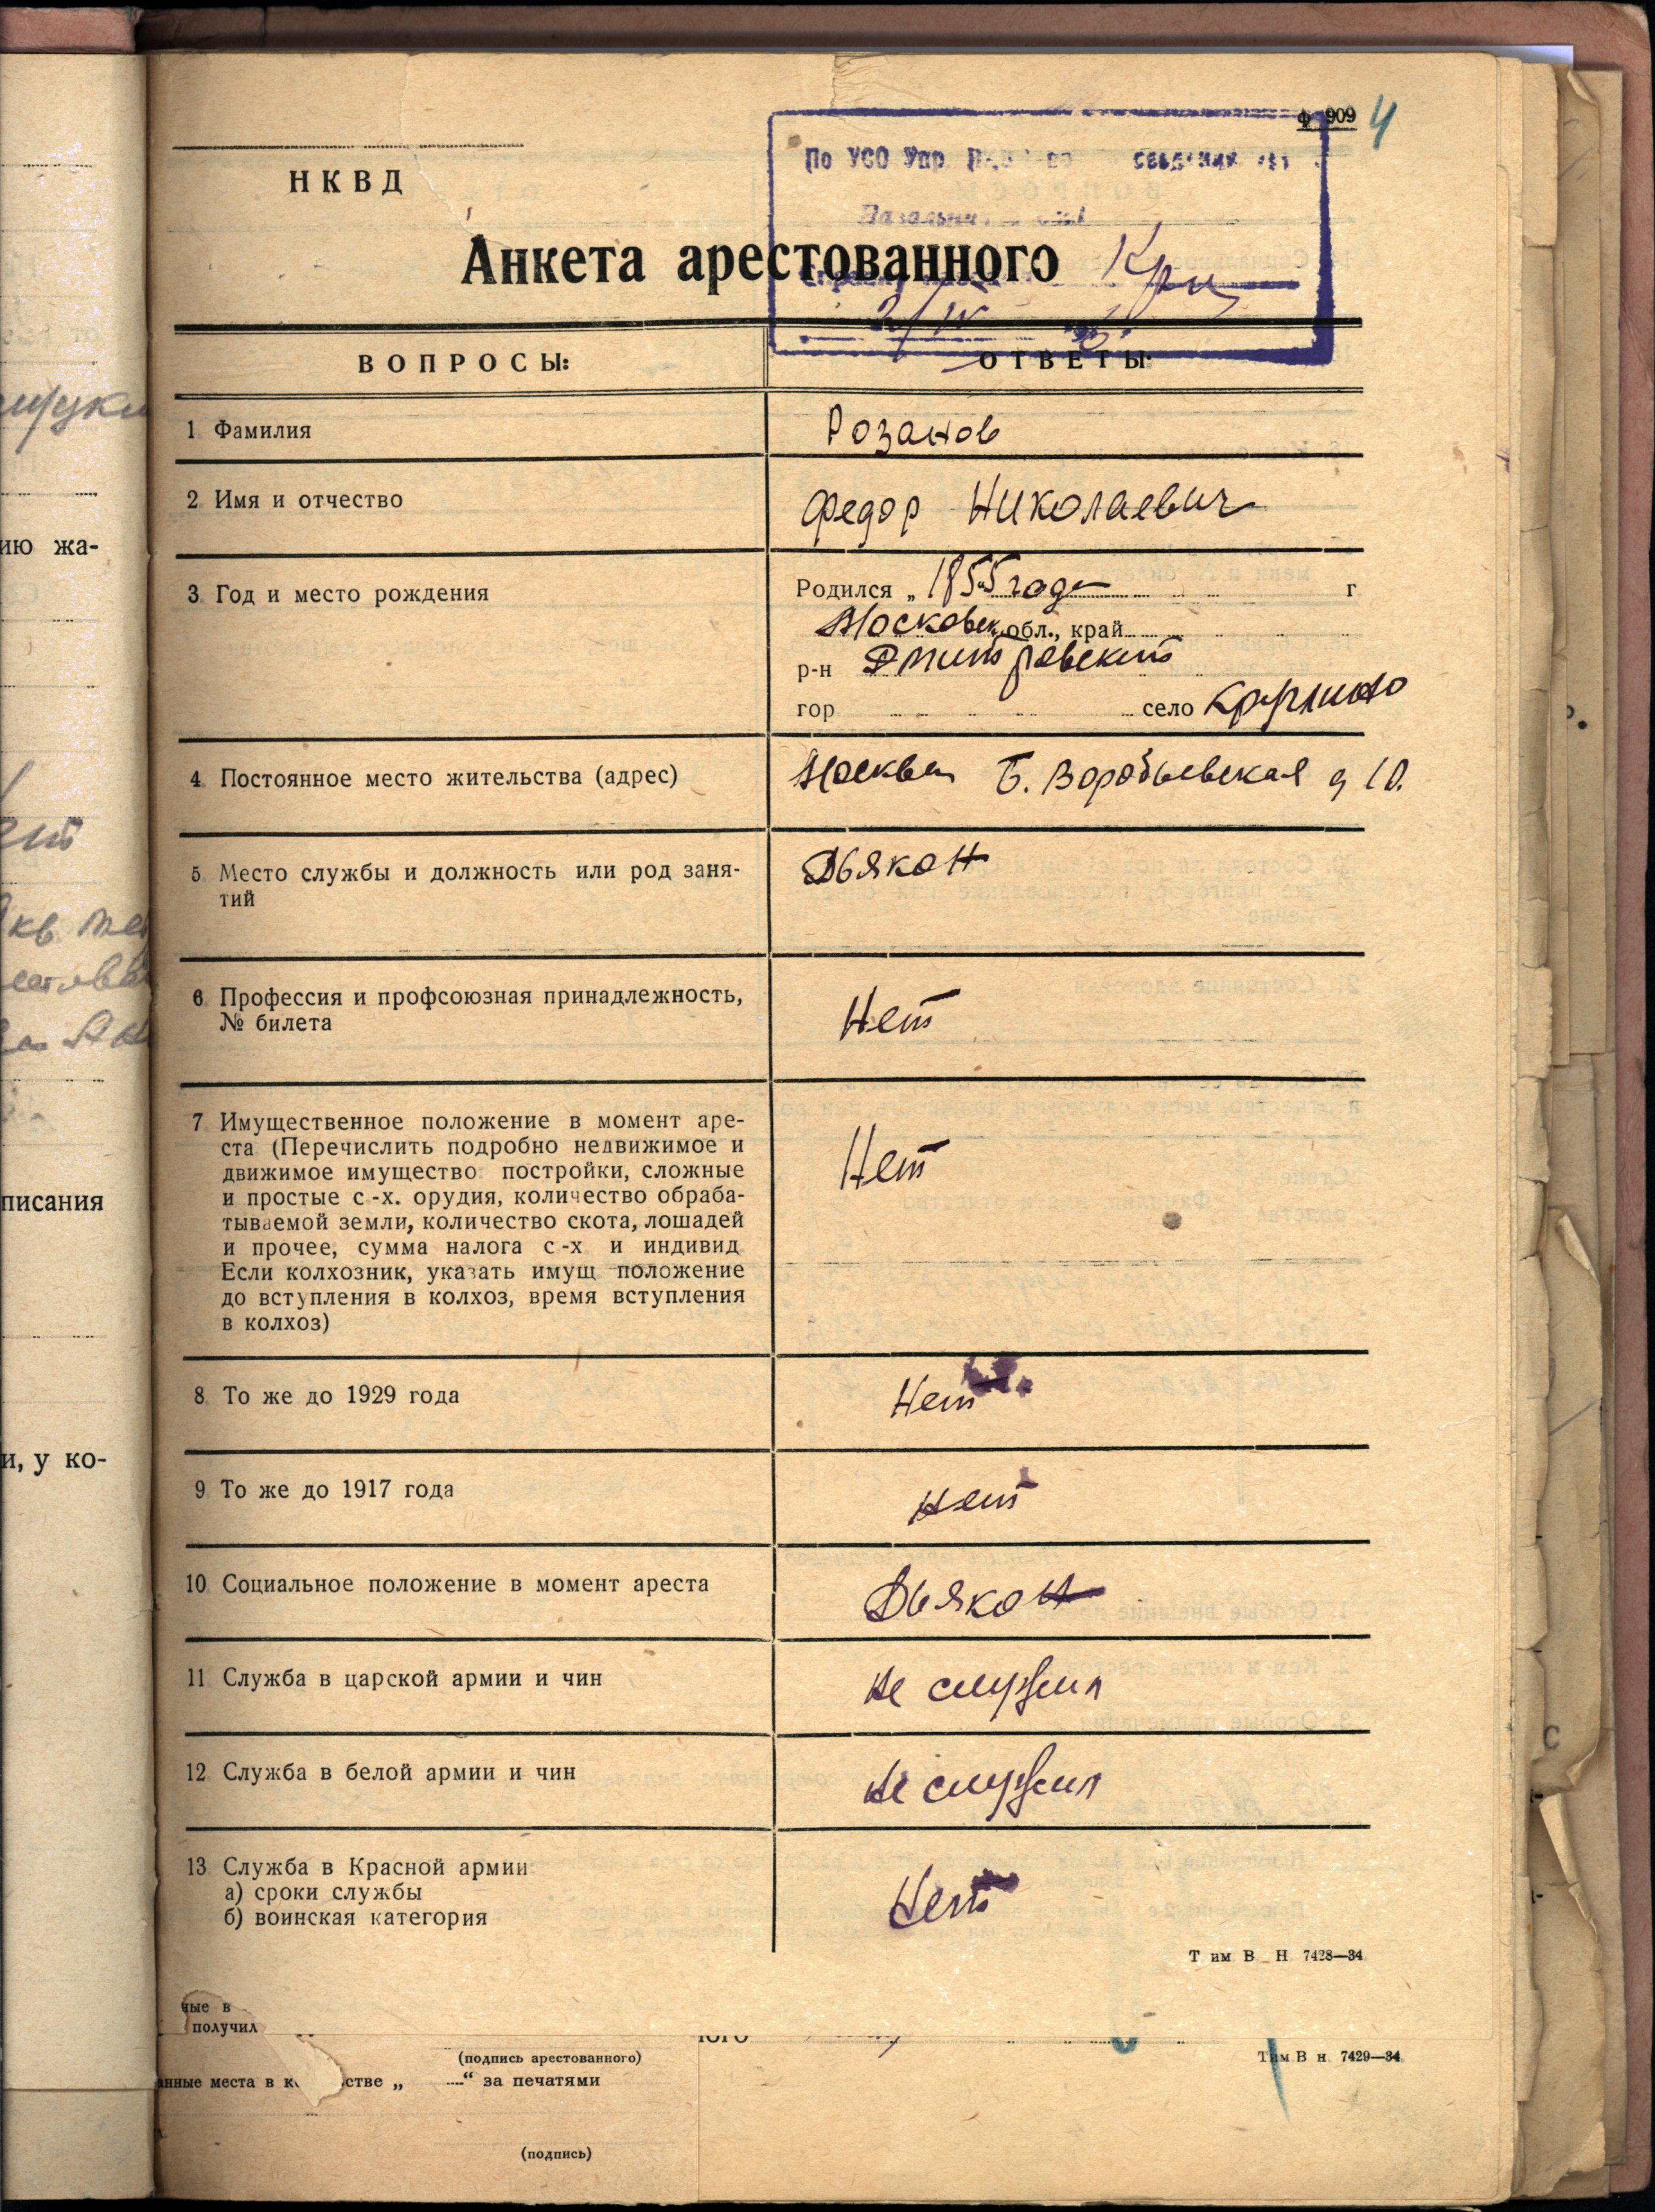 Ф 909 4
НКВД
По УСО Упр. сведений
Анкета арестованного
2/IV
ВОПРОСЫ:
ОТВЕТЫ:
1. Фамилия
Розанов
2. Имя и отчество
Федор Николаевич
3. Год и место рождения
Родился „ 1855 года г
Московск. обл., край
р-н Дмитровский
гор село Круглино
4. Постоянное место жительства (адрес)
Москва Б. Воробьевская д 10.
5. Место службы и должность или род заня-
тий
Дьякон
6. Профессия и профсоюзная принадлежность,
№ билета
Нет
7 Имущественное положение в момент аре-
ста (Перечислить подробно недвижимое и
движимое имущество постройки, сложные
и простые с-х. орудия, количество обраба-
тываемой земли, количество скота, лошадей
и прочее, сумма налога с-х и индивид
Если колхозник, указать имущ положение
до вступления в колхоз, время вступления
в колхоз)
Нет
8. То же до 1929 года
Нет
9 То же до 1917 года
нет
10. Социальное положение в момент ареста
Дьякон
11. Служба в царской армии и чин
не служил
12. Служба в белой армии и чин
не служил
13. Служба в Красной армии
а) сроки службы
б) воинская категория
Нет
Т им В Н 7428—34
ные в
получил
(подпись арестованного)
Тим В н 7429—34
нные места в к стве „ “ за печатями
(подпись)
ию жа-
писания
и, у ко-